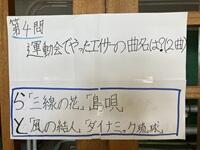 第4問
運動会でやったエイサーの曲名は?(2曲)
ら「三線の花」「島唄」
と「風の結人」「ダイナミック琉球」